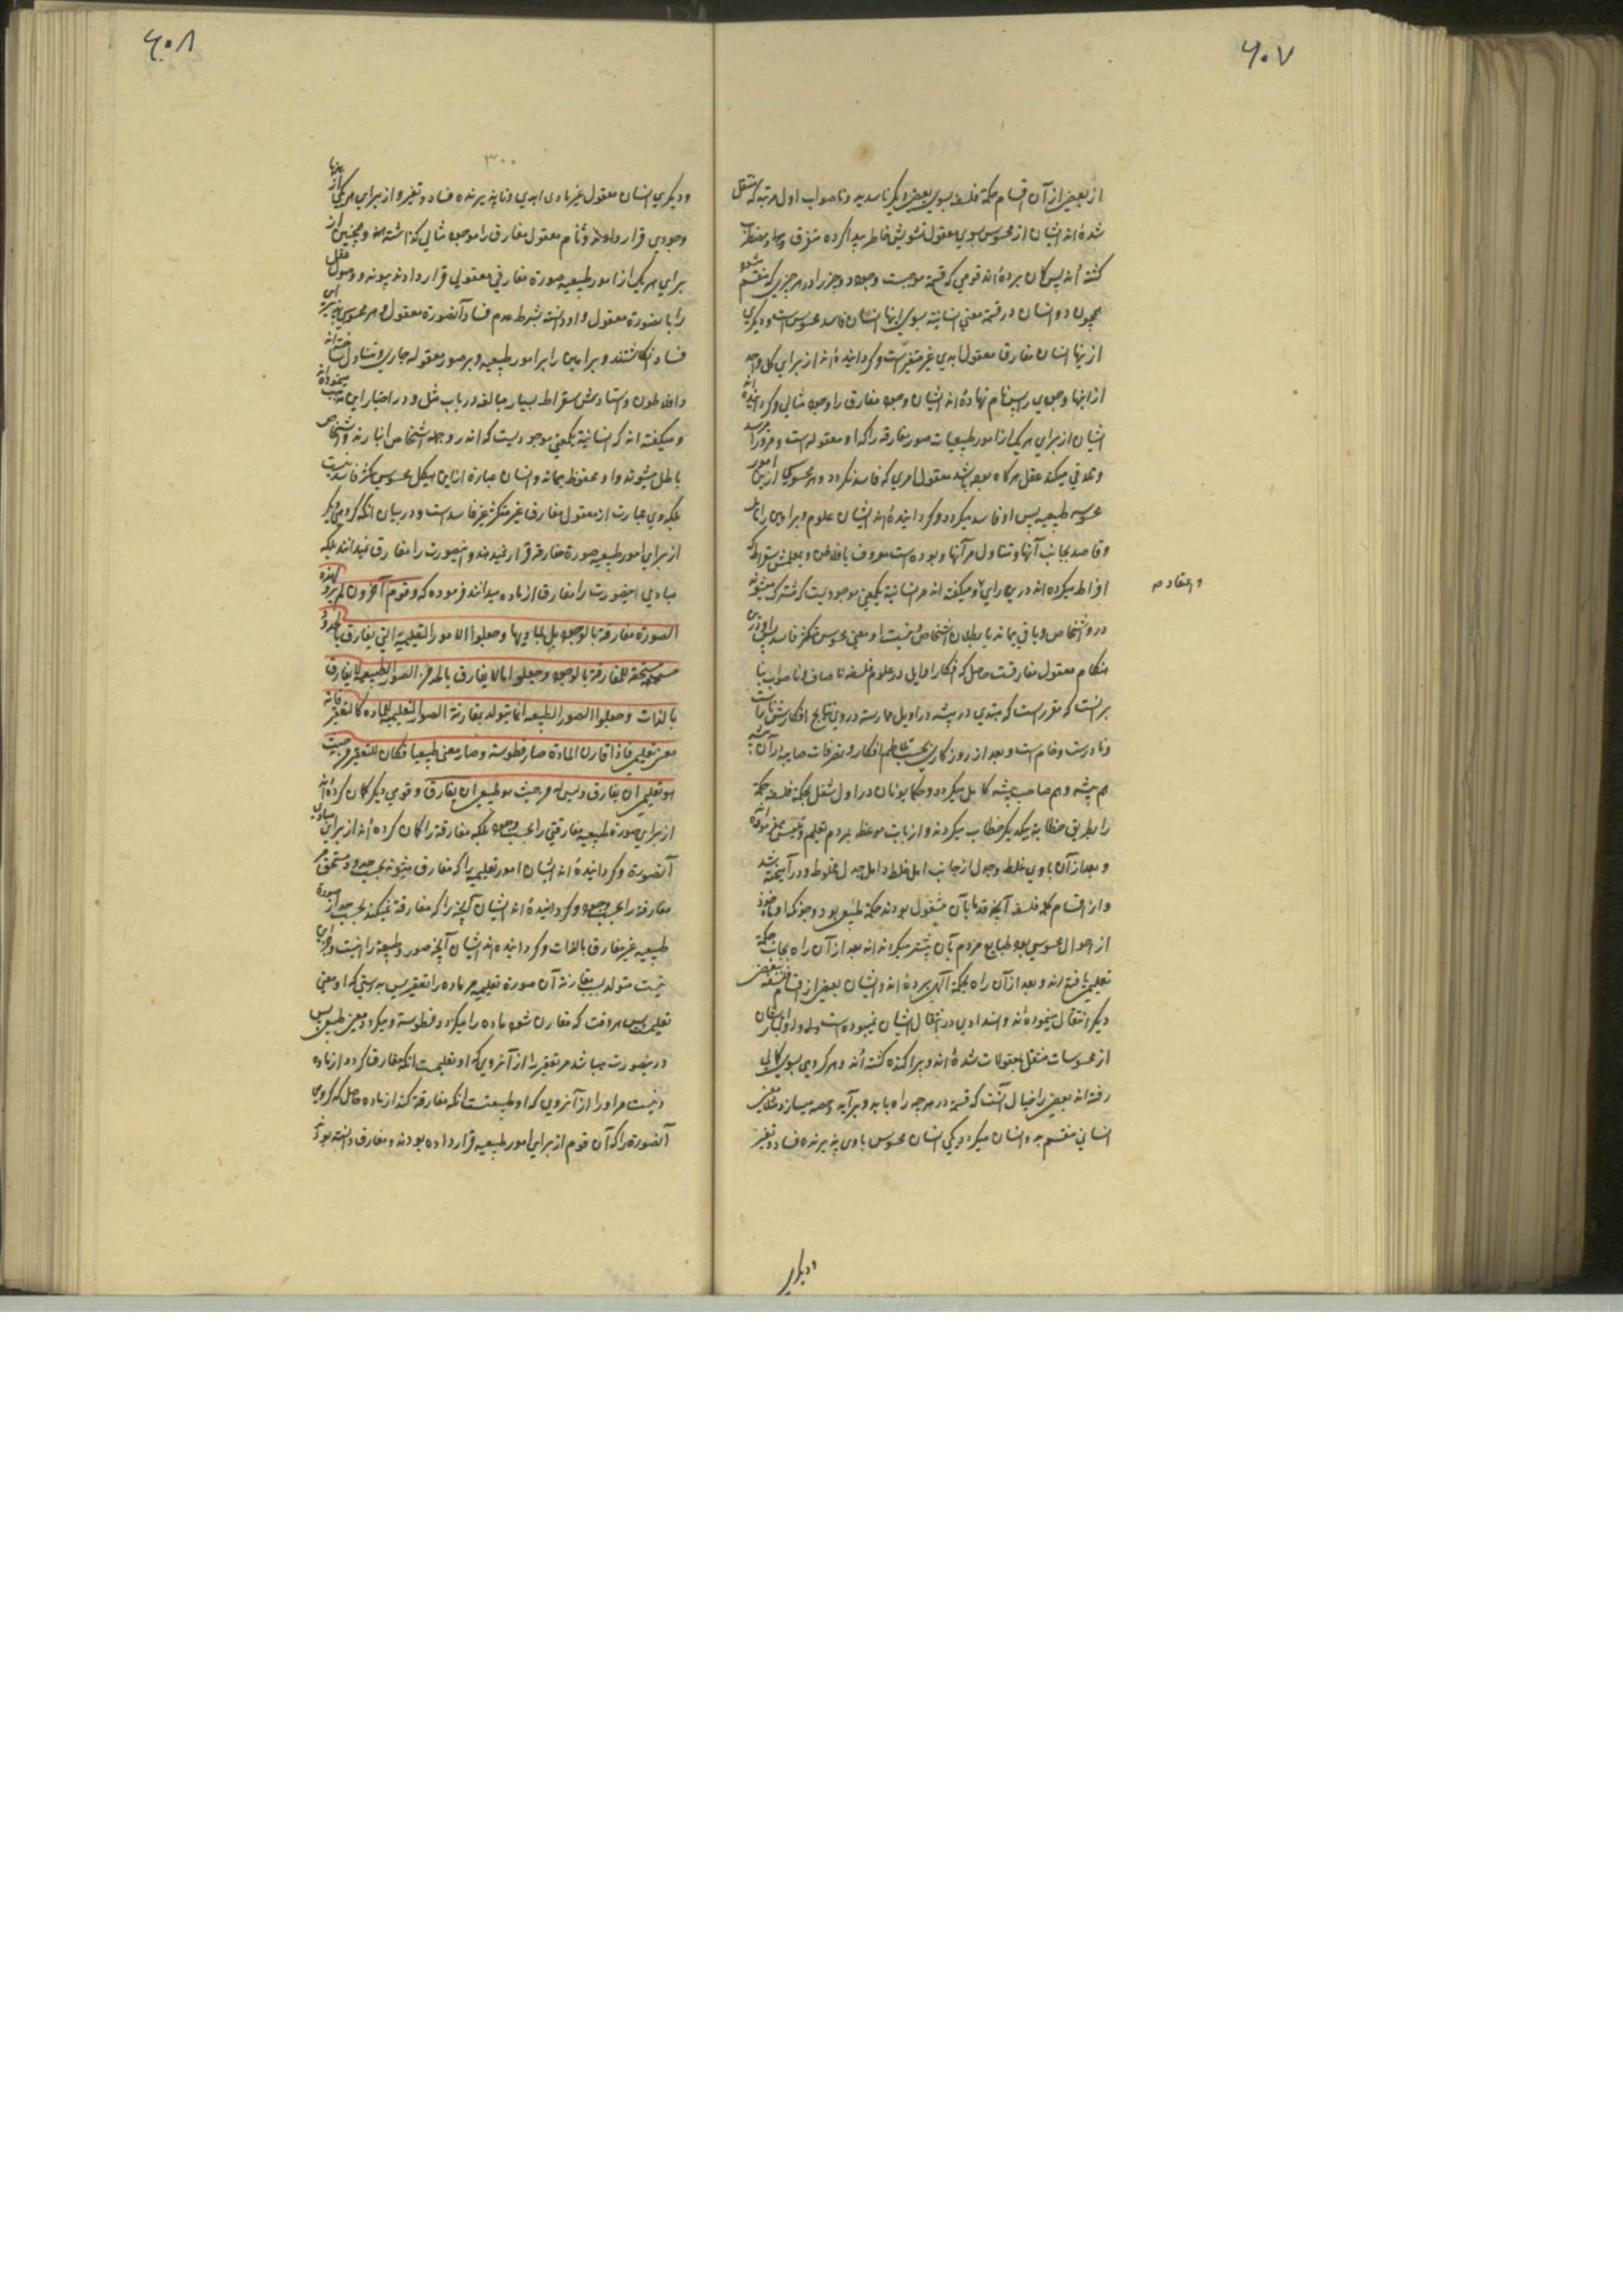 ۶۰۷
از بعضی از آن اقسام حکمة فلسفه بسوی بعضی دیگر ناسدید و ناصواب اول مرتبه که منتقل
شده‌اند ایشان از محسوس بسوی معقول تشویش خاطر پیدا کرده متفرق و مضطرب
کشته‌اند پس کمان برده‌اند قومی که قسمة موجبست وجود دو چیز را در هر چیزی که منقسم شود
همچون دو انسان در قسمة معنی انسانیة بسوی اینها انسان فاسد محسوس است و دیکری
از اینها انسان مفارق معقول ابدی غیر متغیر است و کردانیده‌اند از برای کل واحد
از اینها وجودی پس نام نهاده‌اند ایشان وجود مفارق را وجود مثالی و کردانیده‌اند
ایشان از برای هر یک از امور طبیعیات صور مفارقه را که او معقوله است و
و تلاقی میکند عقل هرکاه بوده باشد معقول امری که فاسد نکردد و هر محسوسی از این امور
محسوسه طبیعیه پس او فاسد میکردد و کردانیده‌اند ایشان علوم و براهین را مایل
و قاصد بجانب آنها و متناول مر آنها و بوده است معروف بافلاطن و معلمش سقراط که
افراط میکرده‌اند درین رای و میکفته‌اند مر انسانیة یکمعنی موجودیست که مشترک میشوند
درو اشخاص و باقی بماند با بطلان اشخاص و نیست او معنی محسوس متکثر فاسد پس او درین
هنکام معقول مفارقست حاصل که افکار اوایل در علوم فلسفه ناصاف و ناصواب بنا
برانست که مقرر است که مبتدی در پیشه در اوایل ممارسته در وی نتایج افکارش ناراست
و نادرست و خام است و بعد از روزکاری بحسب تلاطم افکار و تصرفات صایبه در آن پیشه
هم پیشه و هم صاحب پیشه کامل میکردد و حکما یونان در اول شغل بحکمة فلسفه حکمة
را بطریق خطابة بیکدیکر خطاب میکردند و از بابت موعظه بمردم تعلیم و
و بعد از آن باوی غلط و جدل از جانب اهل غلط و اهل جدل مخلوط و درآمیخته شد
و از اقسام کلمه فلسفه آنچه قدما بآن مشغول بودند حکمة طبیعی بود
از احوال محسوس بود طبایع مردم بآن بیشتر میکردند‌اند بعد از آن راه بجانب حکمة
تعلیمی یافته‌اند و بعد از آن راه بحکمة آلهی برده‌اند و ایشان بعضی از اقسام فلسفه ببعضی
دیکر انتقال مینموده‌اند و استدادی در انتقال ایشان نمیبوده است
از محسوسات منتقل بمعقولات شده‌اند و پراکنده کشته‌اند و هر کروهی بسوی کمانی
رفته‌اند بعضی را خیال آنست که قسمة در هر چه راه یابد و برآید
انسانی منقسم بدو انسان میکردد یکی انسان محسوس مادی پذیرنده فساد و تغیر
و اعتقاد م
و دیکری
۶۰۸
۳۰۰
و دیکری انسان معقول غیر مادی ابدی و ناپذیرنده فساد و تغیر و از برای هر یکی از اینها
وجودی قرار داده‌اند و نام معقول مفارق را موجود مثالی کذاشته‌اند و همچنین از
برای هر یک از امور طبیعیه صورة مفارقی معقولی قرار دادند
را بآنصورة معقول و او دانسته بشرط عدم فساد آنصورة معقول و هر محسوس
فساد انکاشتند و براهین را بر امور طبیعیه و بر صور معقوله جاری و متناول ساخته‌اند
و افلاطون و استادش سقراط بسیار مبالغه در باب مثل و در اختیار این مذهب مینموده‌اند
و میکفته‌اند که انسانیة یکمعنی موجودیست که اند رو جمله اشخاص انبازند و اشخاص
باطل میشوند و او محفوظ بماند و انسان عبارة از این هیکل محسوس متکثر فاسد نیست
بلکه وی عبارت از معقول مفارق غیر متکثر غیر فاسد است و در بیان آنکه کروهی دیکر
از برای امور طبیعیه صورة مفارقه قرار نمیدهند و اینصورت را مفارق نمیدانند بلکه
مبادی اینصورت را مفارق از ماده میدانند فرموده که و قوم آخرون لم یروا لهذه
الصورة مفارقة بالوجود بل لمبادیها و جعلوا الامور التعلیمیة التی یفارق بالحدود
مستحقة للمفارقة بالوجود و جعلوا ما لا یفارق بالحد من الصور الطبیعیه لا یفارق
بالذات و جعلوا الصور الطبیعه انما یتولد بمقارنة الصور التعلیمیه للماده کالتقعیر فانه
معنی تعلیمی فاذا قارن المادة صار فطوسته و صار معنی طبیعیا فکان للتقعیر من حیث
هو تعلیمی ان یفارق و لیس له من حیث هو طبیعی ان یفارق و قومی دیکر کمان کرده‌اند
از برای صورة طبیعیه مفارقتی را بحسب وجود بلکه مفارقة را کمان کرده‌اند از برای مبادی
آنصورة و کردانیده‌اند ایشان امور تعلیمیه را که مفارق میشوند بحسب حدود مستحق مر
مفارقة را بحسب وجود و کردانیده‌اند ایشان آنچه را که مفارقة نمیکند بحسب حد از صورة
طبیعیه غیر مفارق بالذات و کردانیده‌اند ایشان آنچه صور طبیعیه را
نیست متولد بسبب مقارنة آن صورة تعلیمیه مر ماده را تقعیر پس بدرستی که او معنی
تعلیمیست پس هر وقت که مقارن شود ماده را میکردد فطوسته و میکردد معنی طبیعی پس
در اینصورت میباشد مر تقعیر را از آنروی که او تعلیمیست آنکه مفارقت کردد از ماده
و نیست مر او را از آنروی که او طبیعیست آنکه مفارقة کند از ماده حاصل که کروهی
آنصورة را که آن قوم از برای امور طبیعیه قرار داده بودند و مفارق دانسته بودند